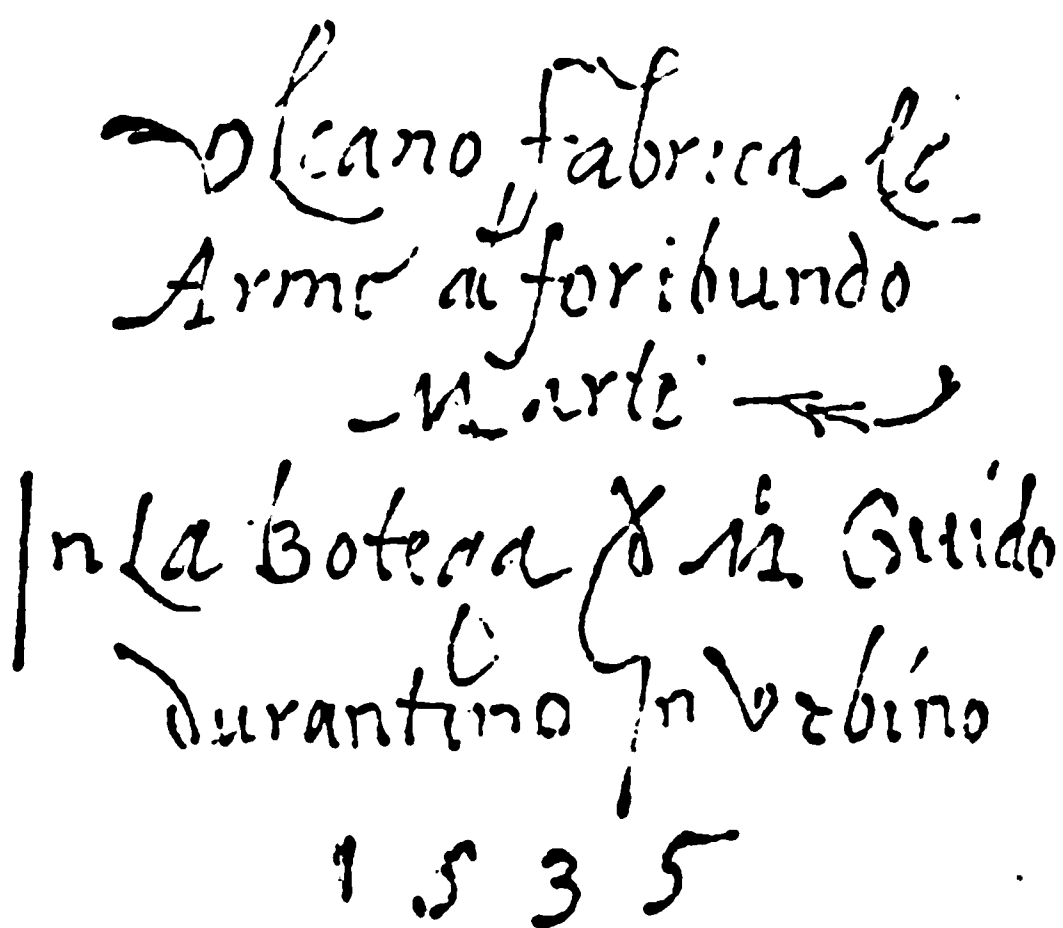 Volcano fabrica le
Arme al foribundo
Marte
In La Botega d M̊ Guido
durantino In Urbino
1535